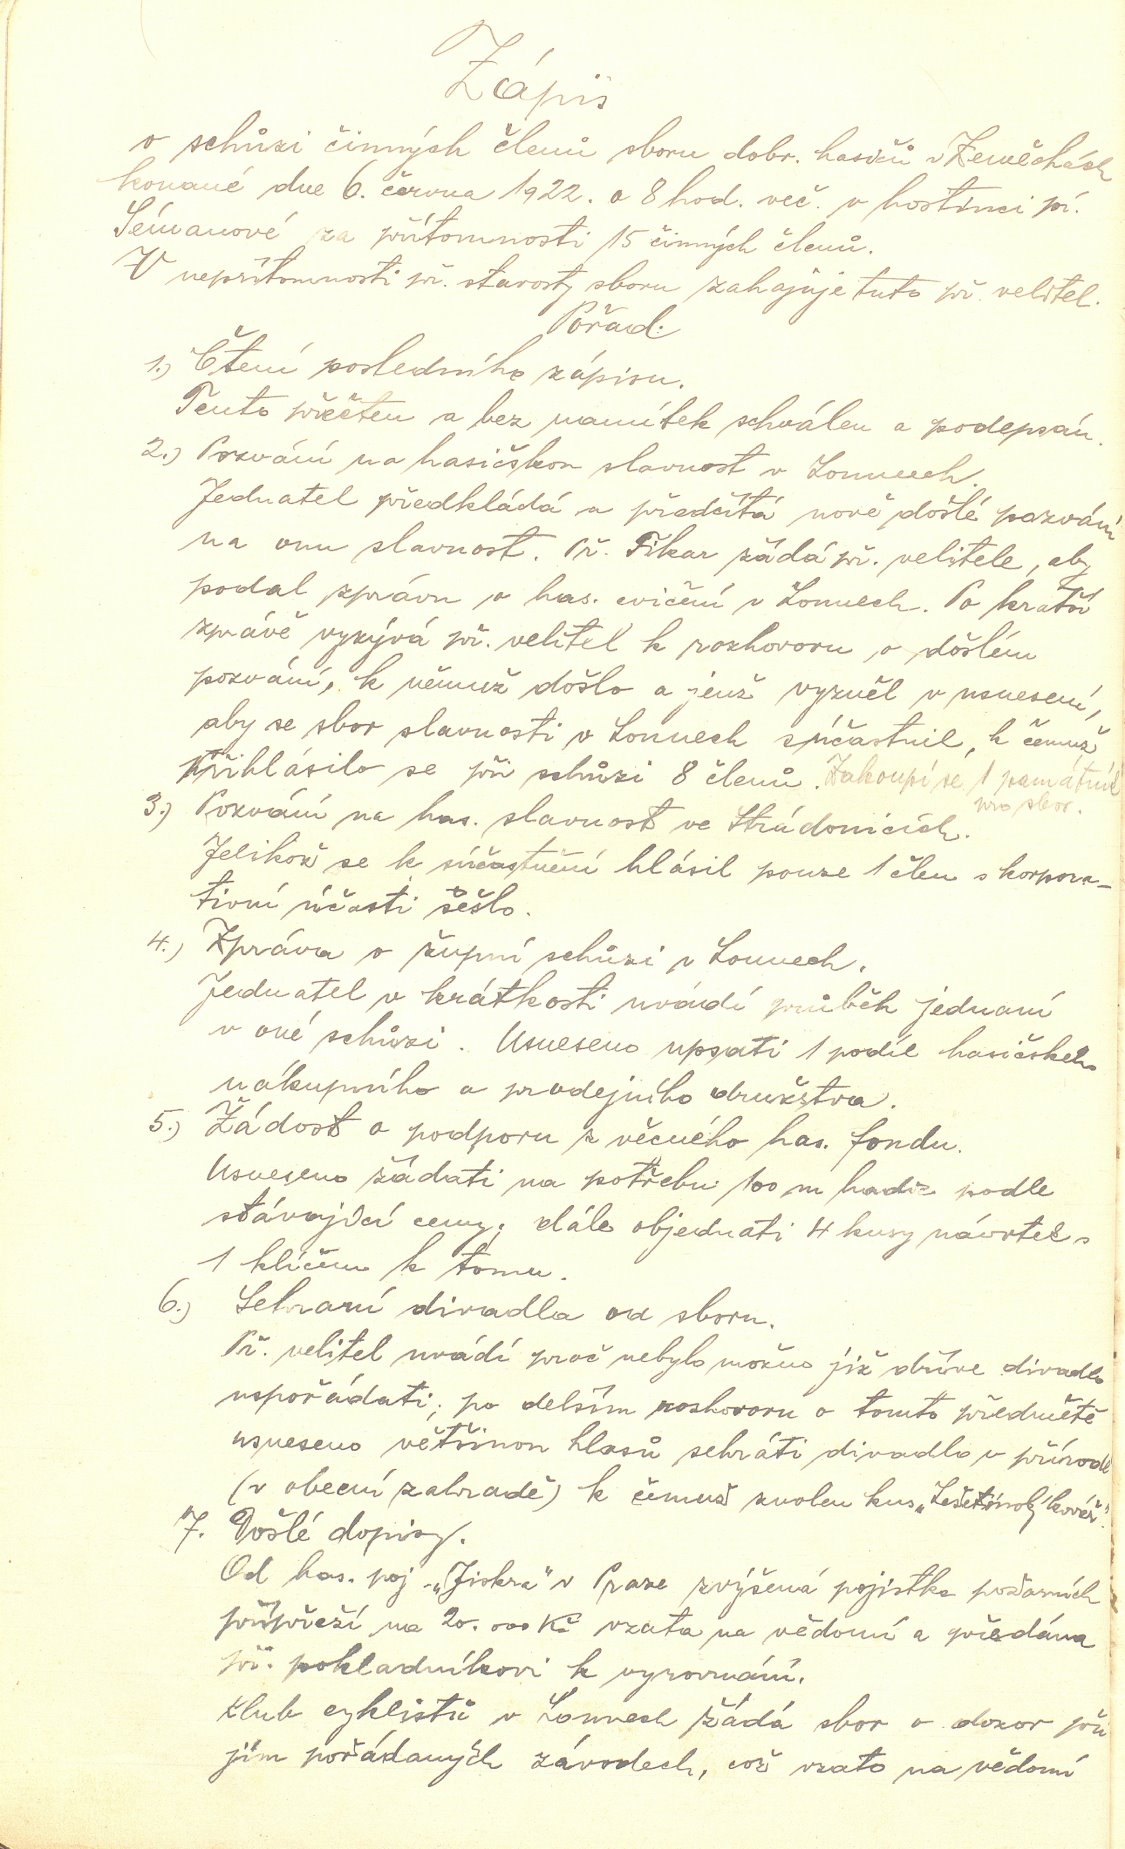 Zápis
o schůzi činných členů sboru dobr. hasičů v Zeměchách
konané dne 6. června 1922. o 8 hod. več. v hostinci pí.
Sémanové za přítomnosti 15 činných členů.
V nepřítomnosti př. starosty sboru zahajuje tuto př. velitel.
Pořad:
1.) Čtení posledního zápisu.
Tento přečten a bez námitek schválen a podepsán.
2.) Pozvání na hasičskou slavnost v Lounech.
Jednatel předkládá a předčítá nově došlé pozvání
na onu slavnost. Př. Fikar žádá př. velitele, aby
podal zprávu o has. cvičení v Lounech. Po kratší
zprávě vyzývá př. velitel k rozhovoru o došlém
pozvání, k němuž došlo a jenž vyzněl v usnesení,
aby se sbor slavnosti v Lounech súčastnil, k čemuž
přihlásilo se při schůzi 8 členů. Zakoupí se 1 památník
pro sbor.
3.) Pozvání na has. slavnost ve Stradonicích.
Jelikož se k súčastnění hlásil pouze 1 člen s korpora-
tivní účasti sešlo.
4.) Zpráva o župní schůzi v Lounech.
Jednatel v krátkosti uvádí průběh jednaní
v oné schůzi. Usneseno upsati 1 podíl hasičského
nákupního a prodejního družstva.
5.) Žádost o podporu z věcného has. fondu.
Usneseno žádati na potřebu 100 m hadic podle
stávající ceny; dále objednati 4 kusy návrtek s
1 klíčem k tomu.
6.) Sehraní divadla od sboru.
Př. velitel uvádí proč nebylo možno již dříve divadlo
uspořádati; po delším roshovoru o tomto předmětě
usneseno většinou hlasů sehráti divadlo v přírodě
(v obecní zahradě) k čemuž zvolen kus „Lešetínský kovář".
7. Došlé dopisy.
Od has. poj. „Jiskra" v Praze zvýšená pojistka požarních
přípřeží na 20.000 Kč vzata na vědomí a předána
př. pokladníkovi k vyrovnání.
Klub cyklistů v Lounech žádá sbor o dozor při
jím pořádaných závodech, což vzato na vědomí